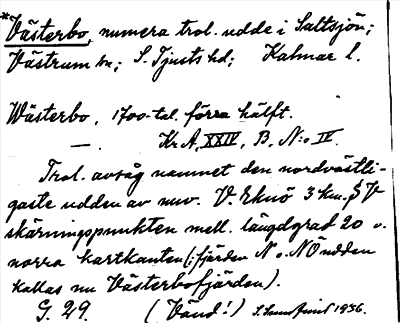 *Västerbo, numera trol. udde i Saltsjön;
Västrum sn; S. Tjusts hd; Kalmar l.
Wästerbo, 1700-tal. förra hälft.
— Kr. A, XXIV, B, N:o IV.
Trol. avsåg namnet den nordvästli-
gaste udden av nuv. V. Eknö 3 km. S V
skärningspunkten mell. längdgrad 20 o.
norra kartkanten (; fjärden N o. NÖ udden
kallas nu Västerbofjärden).
G. 29. (Vänd!) 1936.